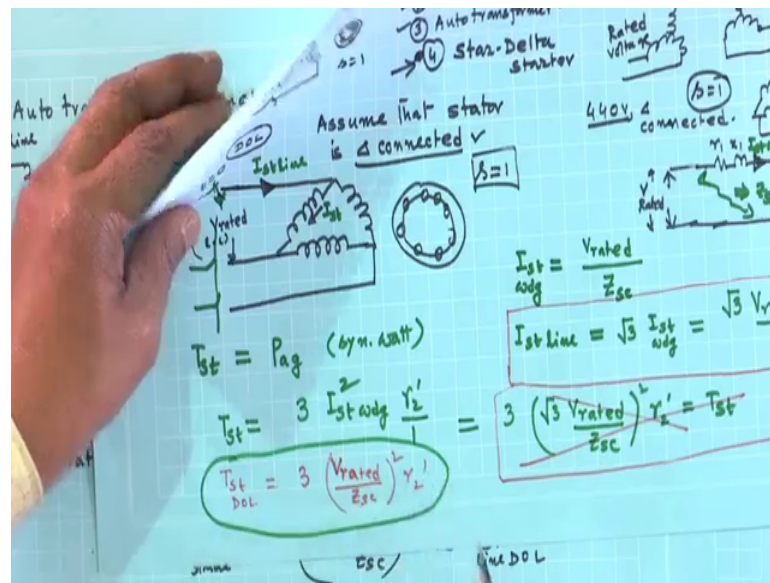 ③ Autotransformer
④ Star-Delta
starter
s=1
Rated
voltage
Auto
DOL
Assume that stator
is Δ connected ✓
s=1
s=1
440V, Δ
connected.
I st Line
I st
V rated
r₁ x₁
V
Rated
I st wdg = V rated / Z sc
I st Line = √3 I st wdg = √3
T st = P ag (syn. watt)
T st = 3 I² st wdg r₂' / 1 = 3 (√3 V rated / Z sc)² r₂' = T st
T st DOL = 3 (V rated / Z sc)² r₂'
Z sc)
line DOL